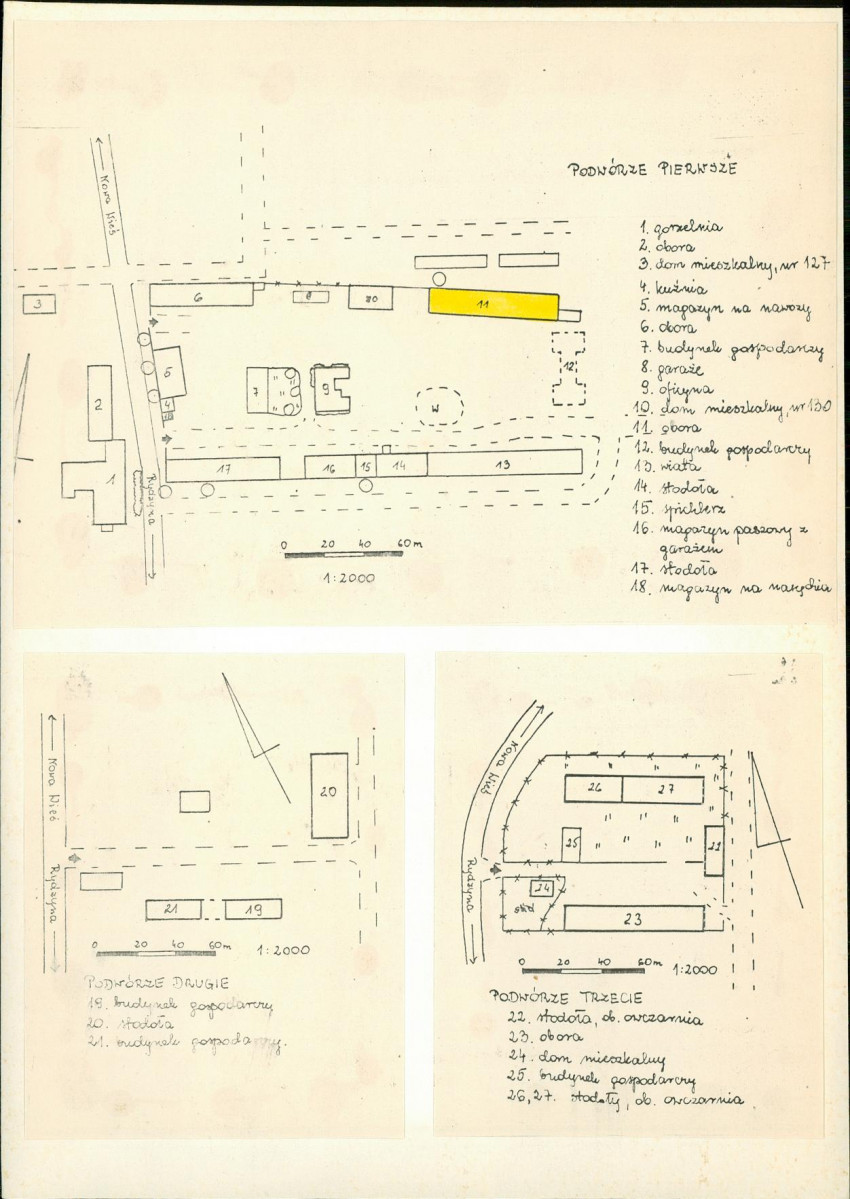 PODWÓRZE PIERWSZE
Nowa Wieś
1. gorzelnia
2. obora
3. dom mieszkalny, nr 127
4. kuźnia
5. magazyn na nawozy
6. obora
7. budynek gospodarczy
8. garaże
9. oficyna
10. dom mieszkalny, nr 130
11. obora
12. budynek gospodarczy
13. wiata
14. stodoła
15. spichlerz
16. magazyn paszowy z
garażem
17. stodoła
18. magazyn na narzędzia
3
6
8
10
11
5
2
4
7
9
W
12
1
17
16
15
14
13
Rydzyna
0 20 40 60 m
1:2000
Nowa Wieś
20
Rydzyna
21
19
0 20 40 60m
1:2000
PODWÓRZE DRUGIE
19. budynek gospodarczy
20. stodoła
21. budynek gospodarczy.
Nowa Wieś
26
27
25
22
Rydzyna
24
23
0 20 40 60 m
1:2000
PODWÓRZE TRZECIE
22. stodoła, ob. owczarnia
23. obora
24. dom mieszkalny
25. budynek gospodarczy
26, 27. stodoły, ob. owczarnia